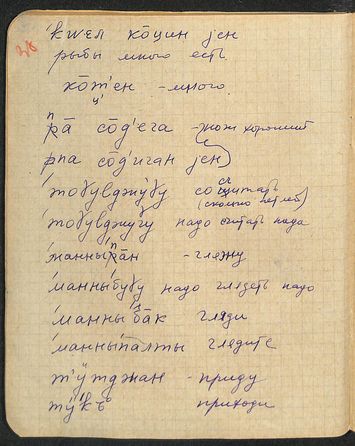 318
кwел ко̄цин jен
рыбы много есть
ко̄т'ен - много
ц'
п
ра̄ со̄д'ега - нож хороший
рпа со̄д'иган jен
тоɣуwджуɣу сосчитать
сч
(сколько петлев)
тоɣуwджугу надо считать надо
маннырап̄н - гляжу
манныɣуɣу надо глядеть надо
манныба̄к гляди
манныпалты глядите
т'ӱтджан - приду
тӱкъ приходи